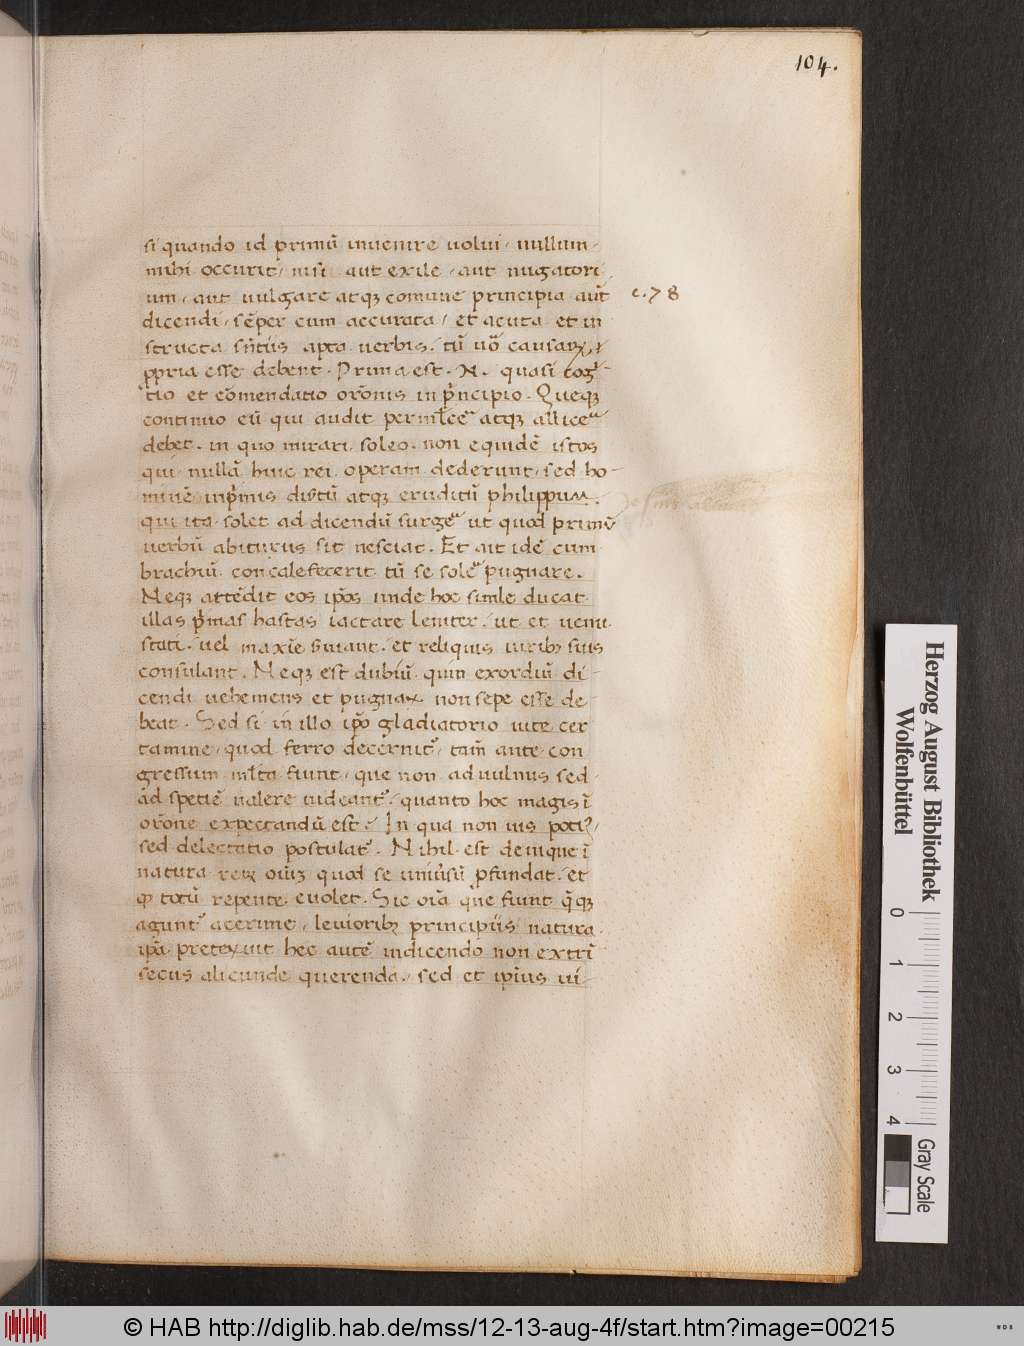 104.
si quando id primū inuenire uolui, nullum
mihi occurit, nisi aut exile, aut nugatori
um, aut uulgare atqȝ comune principia aūt
c. 78
dicendi, sēper cum accurata, et acuta et in
structa sn̄tiis apta uerbis, tū uō causaꝝ
ꝓpria esse debent. Prima est .N. quasi cog
tio et cōmendatio orōnis in pͥncipio. Queqȝ
continuo eū qui audit permlcē atqȝ allice
debet. in quo mirari soleo. non equidē istos
qui nullā huic rei operam dederunt, sed ho-
minē inpͥmis disͬtū atqȝ eruditū philippum.
qui ita solet ad dicendū surgē ut quod primū
uerbū abiturus sit nesciat. Et ait idē cum
brachiū concalefecerit tū se solē pugnare.
Neqȝ attēdit eos ip̄os unde hoc simile ducat
illas pͥmas hastas iactare leniter, ut et uenu
stati, uel maxīe suiant, et reliquis uiribȝ suis
consulant. Neqȝ est dubiū quin exordiū di-
cendi uehemens et pugnax non sepe esse de-
beat. Sed si in illo ip̄o gladiatorio uite cer
tamine, quod ferro decernit᷒, tam̄ ante con
gressum mlta fiunt, que non ad uulnus sed
ad spetiē ualere uideant᷒, quanto hoc magis ī
orōne expectandū est? In qua non uis poti᷒,
sed delectatio postulat᷒. Nihil est denique ī
natura reꝝ oīuꝫ quod se uniūsū ꝓfundat, et
qȝ totū repente euolet. Sic oīā que fiunt q̄qȝ
agunt᷒ acerime, leuioribȝ principiis natura
ip̄a pretexuit hec autē indicendo non extrī
secus alicunde querenda, sed et ip̄ius ui-
Herzog August Bibliothek
Wolfenbüttel
0 1 2 3 4
Gray Scale
© HAB http://diglib.hab.de/mss/12-13-aug-4f/start.htm?image=00215